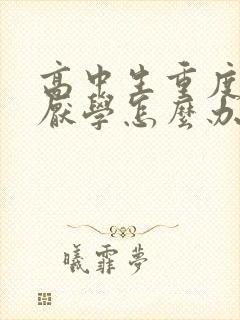 高中生重度
厭學怎麼办
曦霏夢